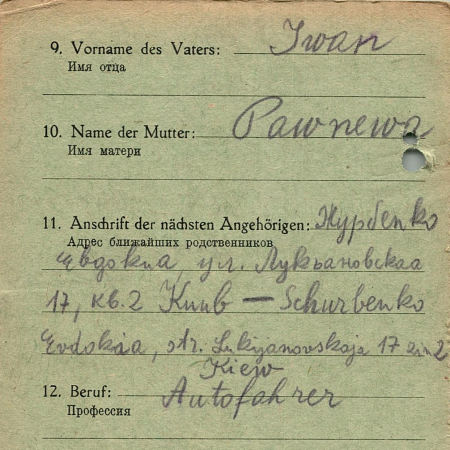 9. Vorname des Vaters: Iwan
Имя отца
10. Name der Mutter: Pawnewa
Имя матери
11. Anschrift der nächsten Angehörigen: Журбенко
Адрес ближайших родственников
Евдокиа, ул. Лукьановскаа
17, кв. 2 Киив — Schurbenko
Evdokia, str. Lukijanovskaja 17 zim 2
Kiew
12. Beruf: Autofahrer
Профессия